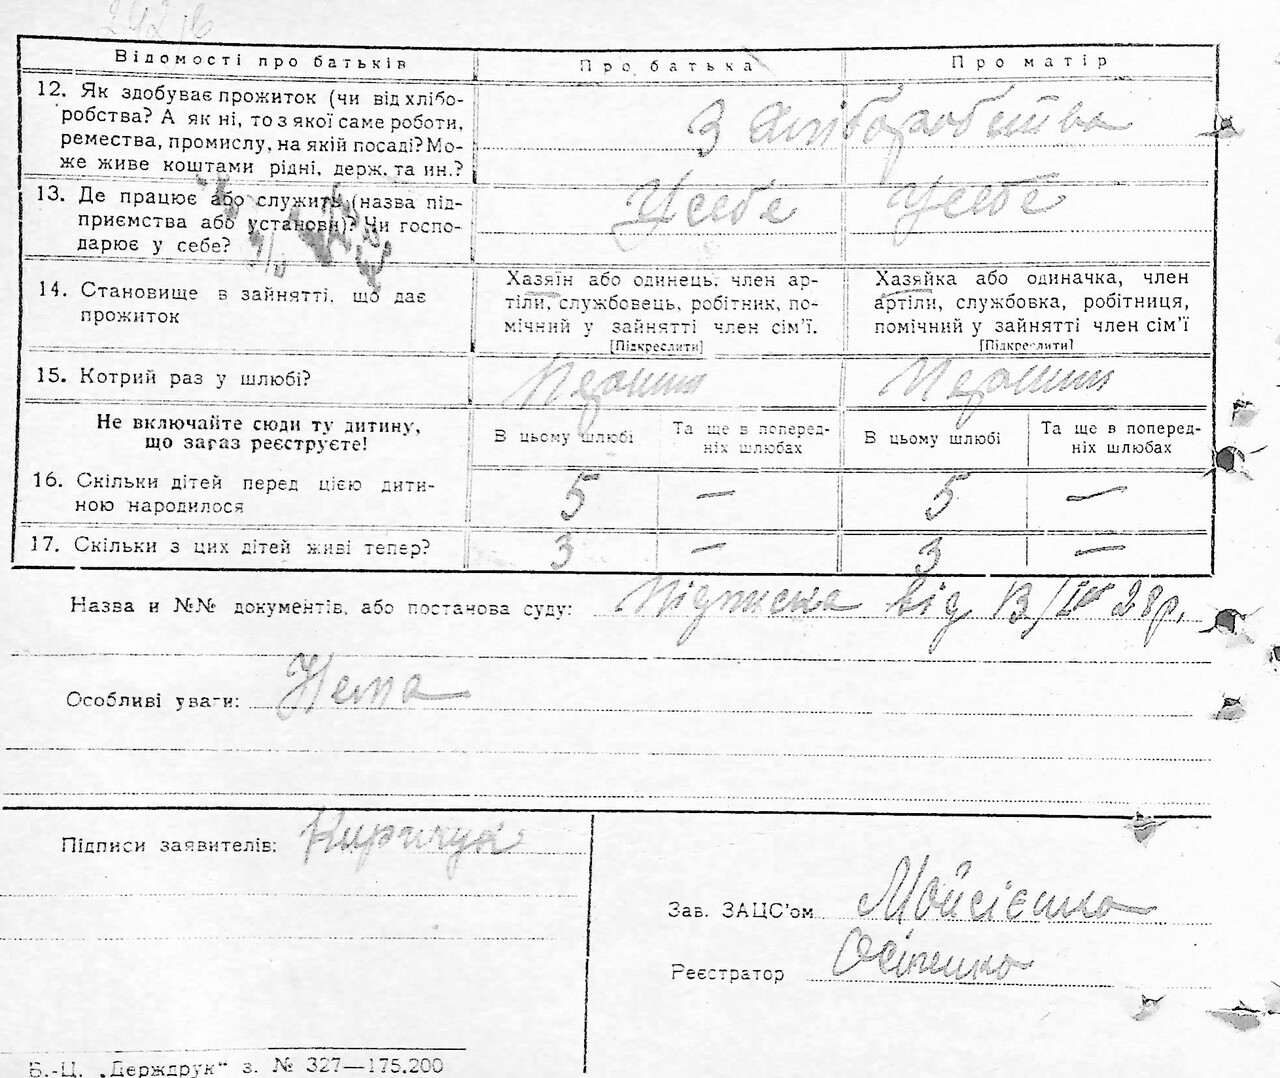 Відомості про батьків Про батька Про матір
12. Як здобуває прожиток (чи від хлібо-
робства? А як ні, то з якої саме роботи,
ремества, промислу, на якій посаді? Мо-
же живе коштами рідні, держ. та ин.?
З хліборобства
13. Де працює або служить (назва під-
приємства або установи)? Чи госпо-
дарює у себе?
У себе У себе
14. Становище в зайнятті, що дає
прожиток
Хазяїн або одинець, член ар-
тіли, службовець, робітник, по-
мічний у зайнятті член сім'ї.
[Підкреслити]
Хазяйка або одиначка, член
артіли, службовка, робітниця,
помічний у зайнятті член сім'ї
[Підкреслити]
15. Котрий раз у шлюбі? Перший Перший
Не включайте сюди ту дитину,
що зараз реєструєте!
В цьому шлюбі
Та ще в поперед-
ніх шлюбах
В цьому шлюбі
Та ще в поперед-
ніх шлюбах
16. Скільки дітей перед цією дити-
ною народилося
5 — 5 —
17. Скільки з цих дітей живі тепер? 3 — 3 —
Назва и №№ документів, або постанова суду: Підписка від 28 р.
Особливі уваги: Нема
Підписи заявителів: Киричук
Зав. ЗАЦС'ом Мойсієнко
Реєстратор Осіпенко
Б.-Ц. „Держдрук" з. № 327—175.200